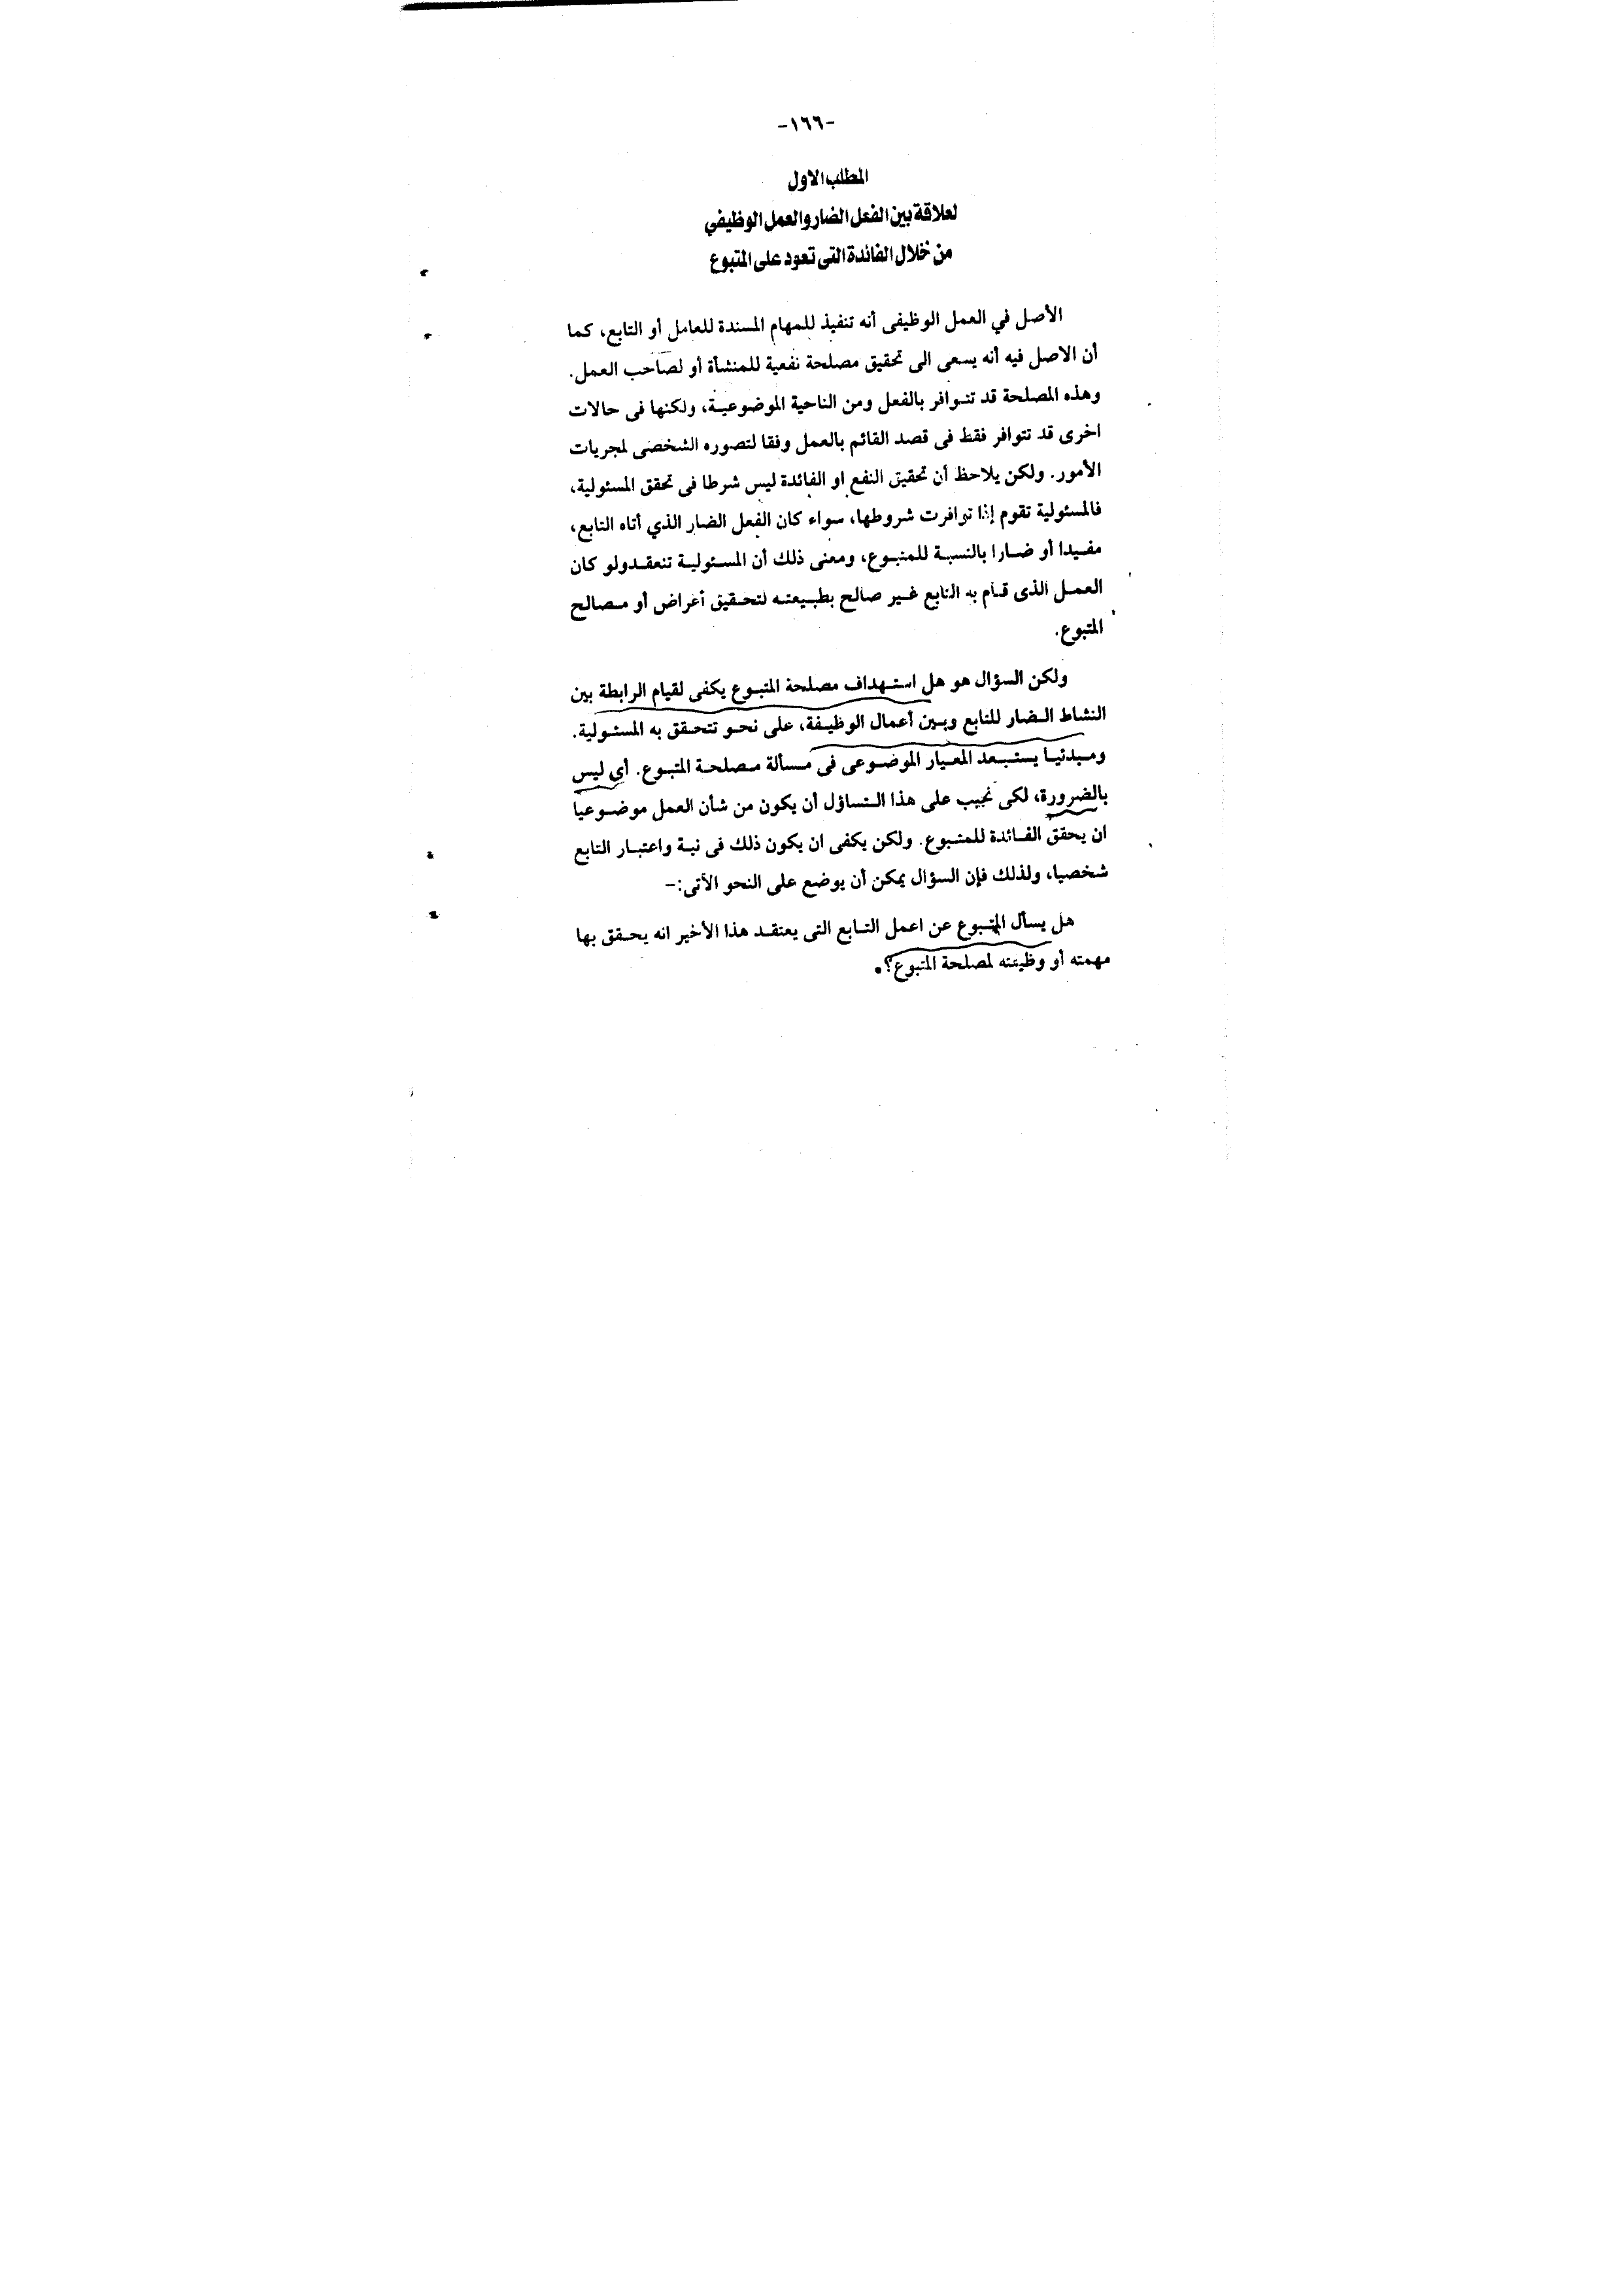 -١٦٦-
المطلب الاول
لعلاقة بين الفعل الضار والعمل الوظيفي
من خلال الفائدة التى تعود على المتبوع
الأصل في العمل الوظيفى أنه تنفيذ للمهام المسندة للعامل أو التابع، كما
أن الاصل فيه أنه يسعى الى تحقيق مصلحة نفعية للمنشأة أو لصاحب العمل.
وهذه المصلحة قد تتوافر بالفعل ومن الناحية الموضوعية، ولكنها فى حالات
اخرى قد تتوافر فقط فى قصد القائم بالعمل وفقا لتصوره الشخصى لمجريات
الأمور. ولكن يلاحظ أن تحقيق النفع او الفائدة ليس شرطا فى تحقق المسئولية،
فالمسئولية تقوم إذا توافرت شروطها، سواء كان الفعل الضار الذي أتاه التابع،
مفيدا أو ضارا بالنسبة للمتبوع، ومعنى ذلك أن المسئولية تنعقدولو كان
العمل الذى قام به التابع غير صالح بطبيعته لتحقيق أغراض أو مصالح
المتبوع.
ولكن السؤال هو هل استهداف مصلحة المتبوع يكفى لقيام الرابطة بين
النشاط الضار للتابع وبين أعمال الوظيفة، على نحو تتحقق به المسئولية.
ومبدئيا يستبعد المعيار الموضوعى فى مسألة مصلحة المتبوع. أي ليس
بالضرورة، لكى نجيب على هذا التساؤل أن يكون من شأن العمل موضوعيا
ان يحقق الفائدة للمتبوع. ولكن يكفى ان يكون ذلك فى نية واعتبار التابع
شخصيا، ولذلك فإن السؤال يمكن أن يوضع على النحو الآتى:-
هل يسأل المتبوع عن اعمل التابع التى يعتقد هذا الأخير انه يحقق بها
مهمته أو وظيفته لمصلحة المتبوع؟.